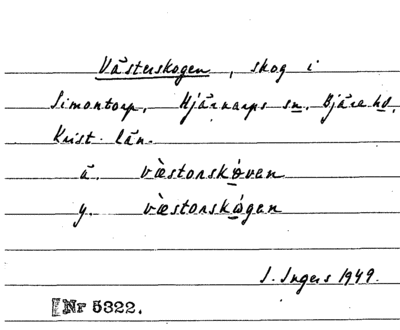 Västerskogen, skog i
Simontorp, Hjärnarps sn, Bjäre hd,
Krist. län.
ä. væ̀stərskǿven
y. væ̀stərskógen
I. Ingers 1949.
Nr 5322.